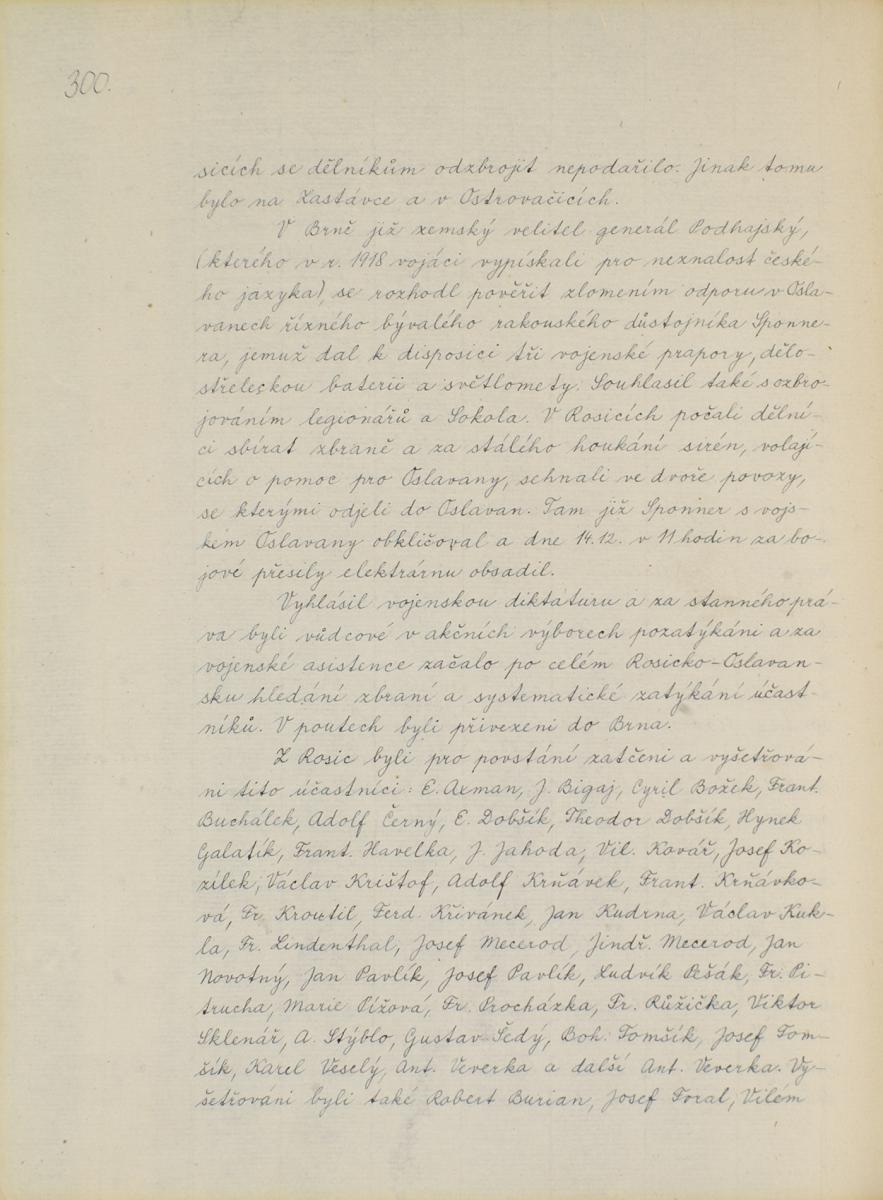 300.
sicích se dělníkům odzbrojit nepodařilo. Jinak tomu
bylo na Zastávce a v Ostrovačicích.
V Brně již zemský velitel generál Podhajský,
(kterého v r. 1918 vojáci vypískali pro neznalost české-
ho jazyka), se rozhodl pověřit zlomením odporu v Osla-
vanech řízného bývalého rakouského důstojníka Sponne-
ra, jemuž dal k disposici tři vojenské prapory, dělo-
střeleckou baterii a světlomety. Souhlasil také s ozbro-
jováním legionářů a Sokola. V Rosicích počali dělní-
ci sbírat zbraně a za stálého houkání sirén, volají-
cích o pomoc pro Oslavany, sehnali ve dvoře povozy,
se kterými odjeli do Oslavan. Tam již Sponner s vojs-
kem Oslavany obkličoval a dne 14.12. v 11 hodin za bo-
jové přesily elektrárnu obsadil.
Vyhlásil vojenskou diktaturu a za stanného prá-
va byli vůdcové v akčních výborech pozatýkáni a za
vojenské asistence začalo po celém Rosicko-Oslavan-
sku hledání zbraní a systematické zatýkání účast-
níků. V poutech byli přivezeni do Brna.
Z Rosic byli pro povstání zatčeni a vyšetřová-
ni tito účastníci: E. Axman, J. Bigaj, Cyril Božek, Frant.
Buchálek, Adolf Černý, E. Dobšík, Theodor Dobšík, Hynek
Galatík, Frant. Havelka, J. Jahoda, Vil. Kovář, Josef Ko-
zílek, Václav Krištof, Adolf Krňávek, Frant. Krňávko-
vá, Fr. Kroutil, Ferd. Křivánek, Jan Kudrna, Václav Kuk-
la, Fr. Lindenthal, Josef Mecerod, Jindř. Mecerod, Jan
Novotný, Jan Pavlík, Josef Pavlík, Ludvík Pešák, Fr. Pi-
trucha, Marie Pížová, Fr. Procházka, Fr. Růžička, Viktor
Sklenář, A. Stýblo, Gustav Šedý, Boh. Tomšík, Josef Tom-
šík, Karel Veselý, Ant. Veverka a další Ant. Veverka. Vy-
šetřováni byli také Robert Burian, Josef Foral, Vilém